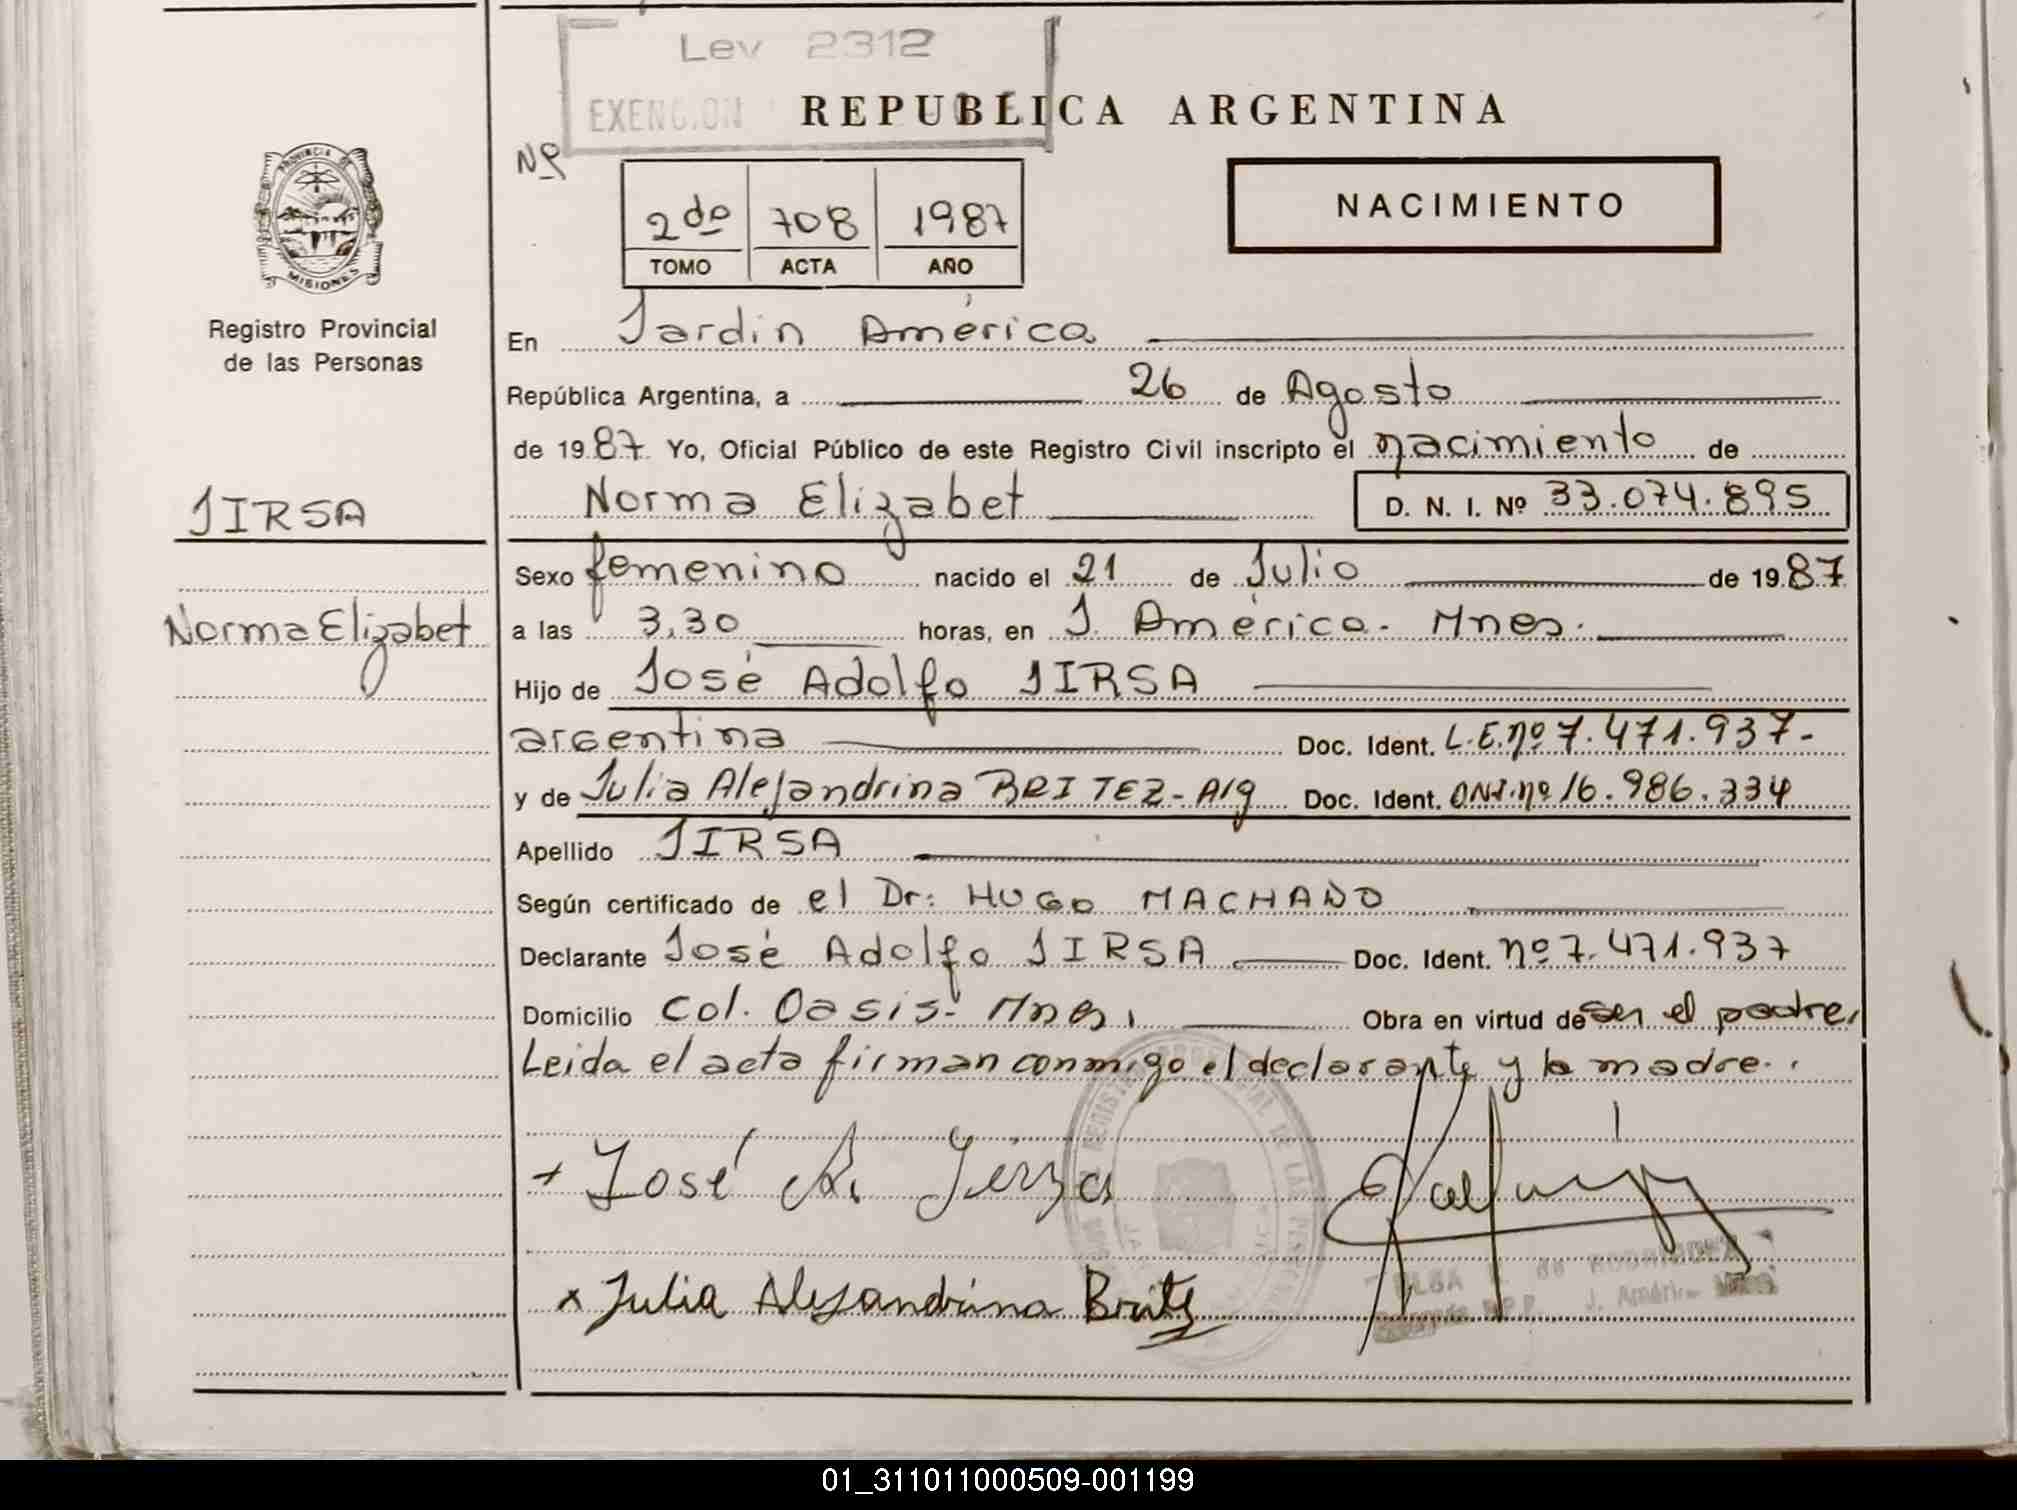 Ley 2312
EXENCION
REPUBLICA ARGENTINA
Nº
2do 708 1987
TOMO ACTA AÑO
NACIMIENTO
PROVINCIA DE MISIONES
Registro Provincial
de las Personas
JIRSA
Norma Elizabet
En Jardin América
República Argentina, a 26 de Agosto
de 1987. Yo, Oficial Público de este Registro Civil inscripto el nacimiento de
Norma Elizabet D. N. I. Nº 33.074.895
Sexo femenino nacido el 21 de Julio de 1987
a las 3,30 horas, en J. América. Mnes.
Hijo de José Adolfo JIRSA
argentina Doc. Ident. L.E. nº 7.471.937-
y de Julia Alejandrina BRITEZ - Arg Doc. Ident. DNI. nº 16.986.334
Apellido JIRSA
Según certificado de el Dr: HUGO MACHADO
Declarante José Adolfo JIRSA Doc. Ident. nº 7.471.937
Domicilio Col. Oasis- Mnes, Obra en virtud de ser el padre,
Leida el acta firman conmigo el declarante y la madre.
+ José A. Jirsa
x Julia Alejandrina Britz
J. Améri
01_311011000509-001199